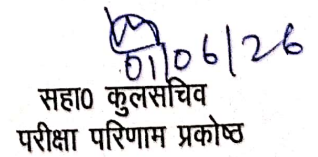 01/06/26
सहा0 कुलसचिव
परीक्षा परिणाम प्रकोष्ठ